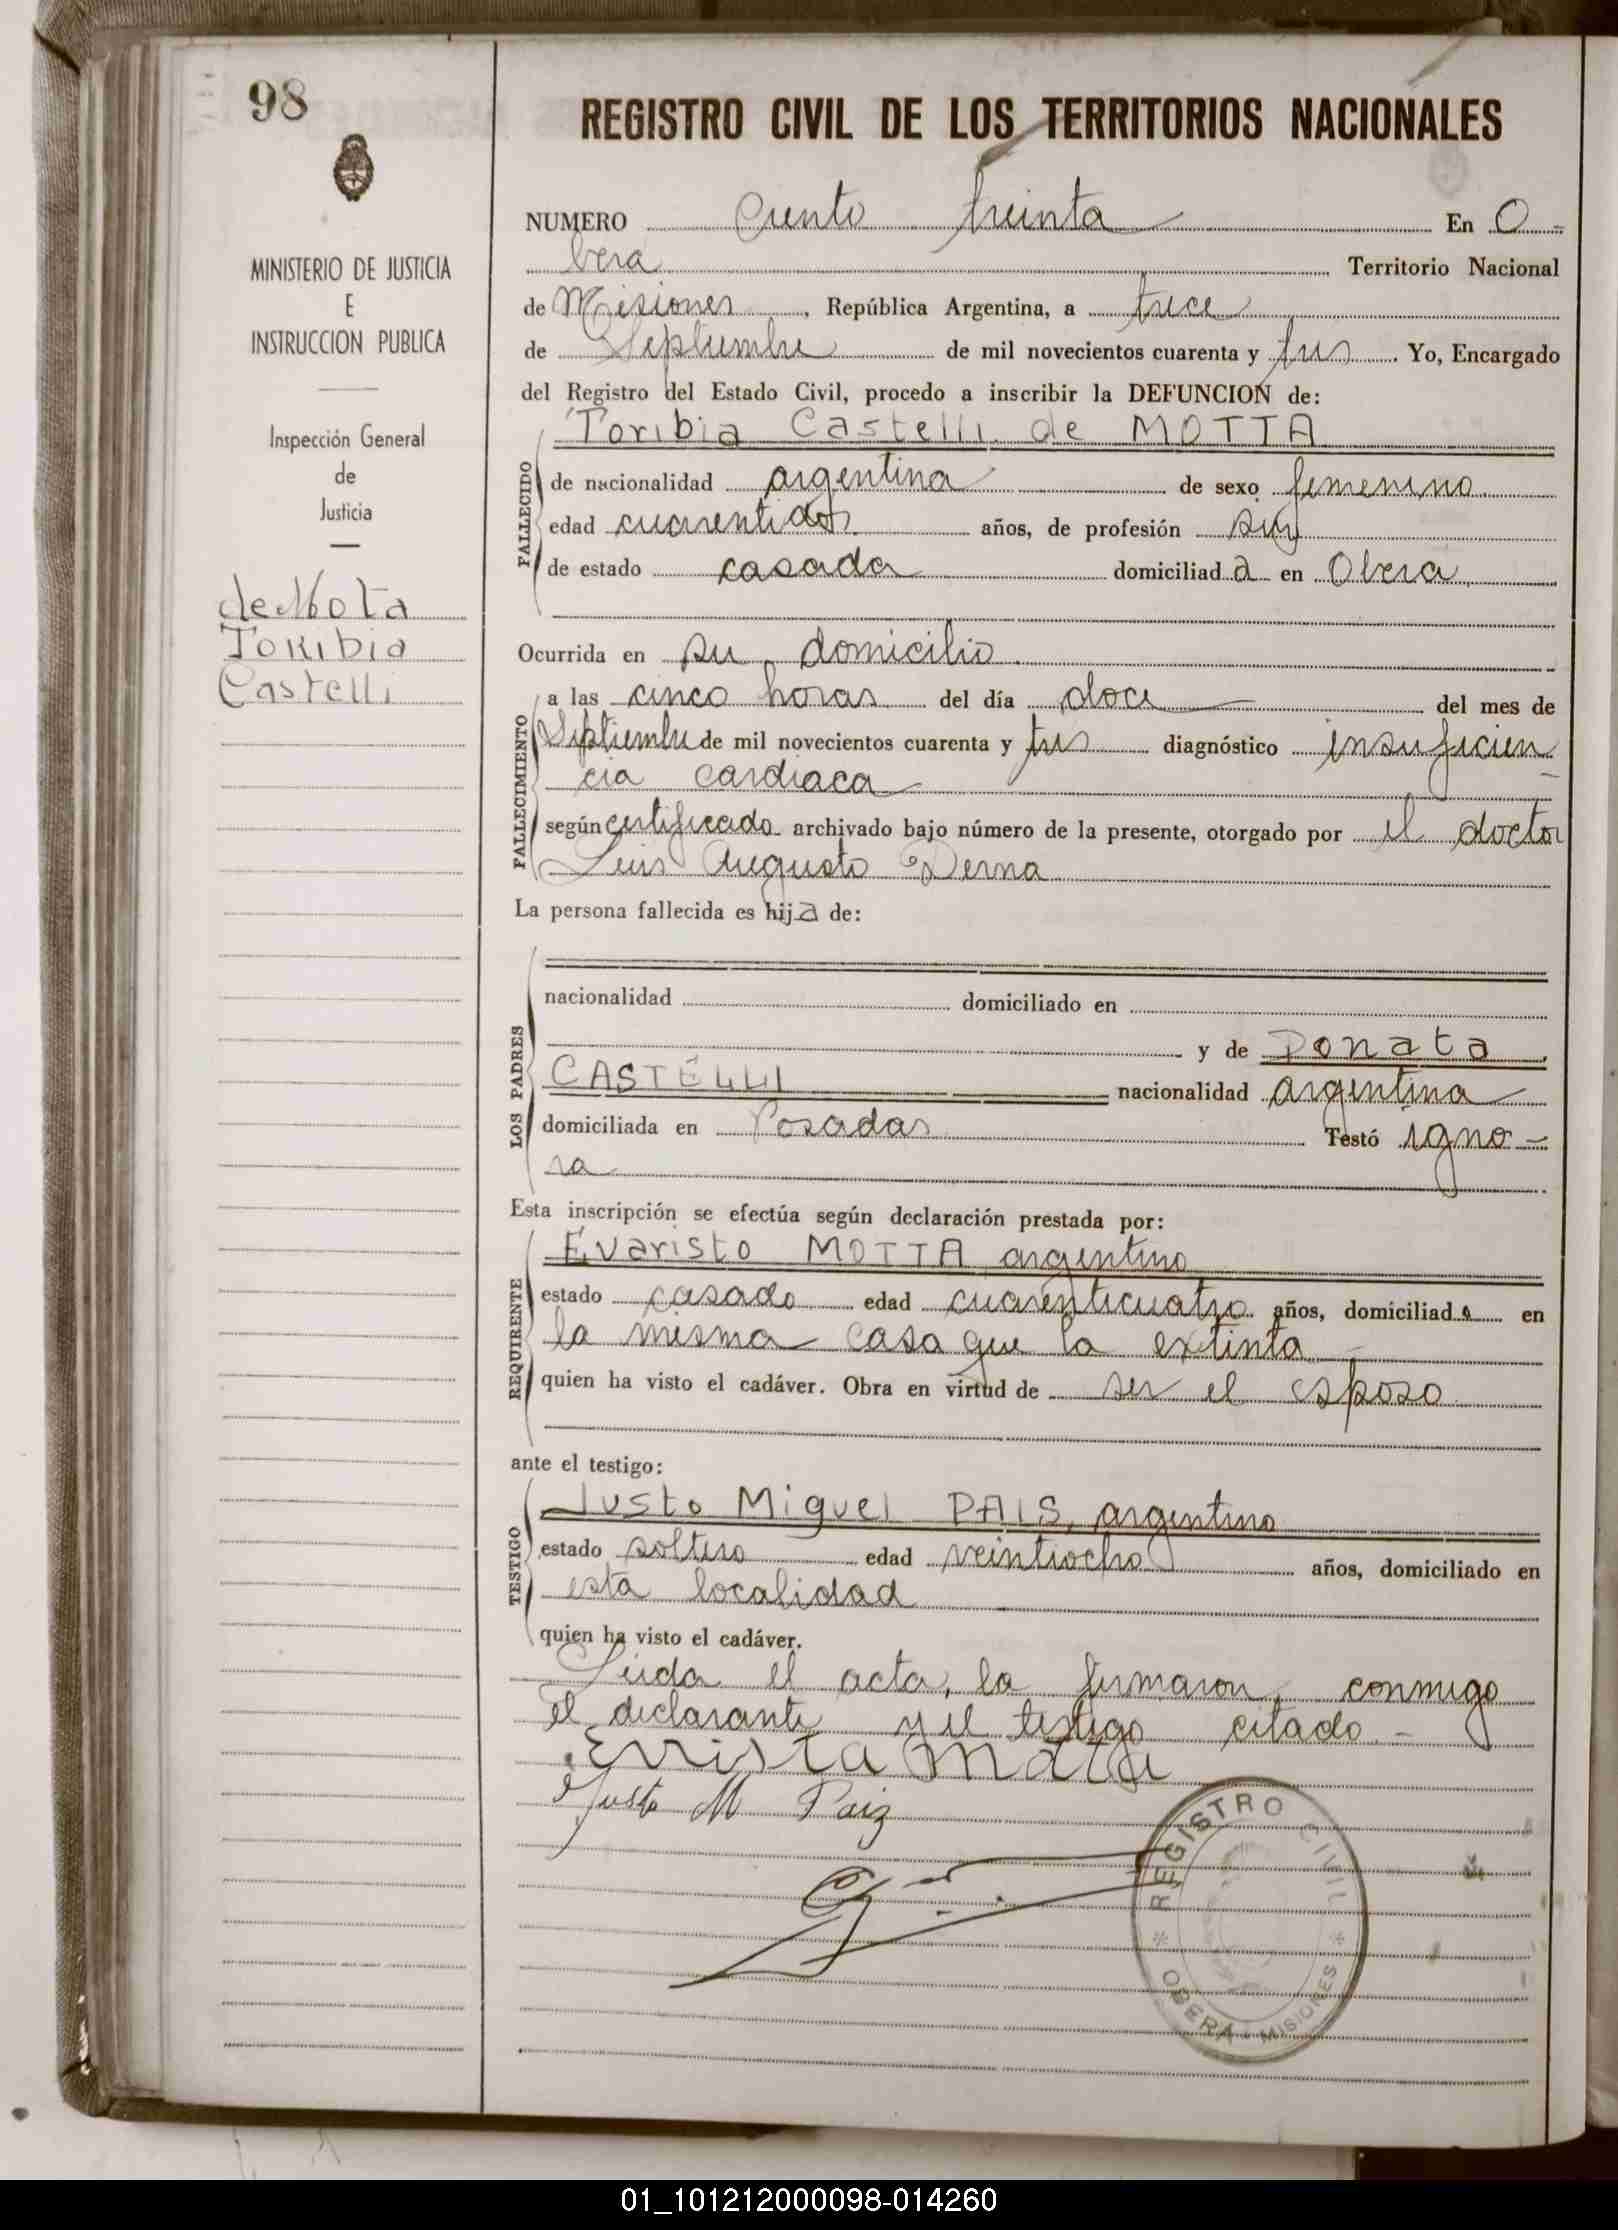 98
REGISTRO CIVIL DE LOS TERRITORIOS NACIONALES
MINISTERIO DE JUSTICIA
E
INSTRUCCION PUBLICA
Inspección General
de
Justicia
de Mota
Toribia
Castelli
NUMERO Ciento treinta En O-
bera Territorio Nacional
de Misiones, República Argentina, a trece
de Septiembre de mil novecientos cuarenta y tres. Yo, Encargado
del Registro del Estado Civil, procedo a inscribir la DEFUNCION de:
Toribia Castelli de MOTTA
FALLECIDO
de nacionalidad argentina de sexo femenino
edad cuarentidos años, de profesión
de estado casada domiciliada en Obera
Ocurrida en su domicilio
FALLECIMIENTO
a las cinco horas del día doce del mes de
Septiembre de mil novecientos cuarenta y tres diagnóstico insuficien-
cia cardiaca
según certificado archivado bajo número de la presente, otorgado por el doctor
Luis Augusto Derna
La persona fallecida es hija de:
LOS PADRES
nacionalidad domiciliado en
y de Donata
CASTELLI nacionalidad argentina
domiciliada en Posadas Testó igno-
ra
Esta inscripción se efectúa según declaración prestada por:
REQUIRENTE
Evaristo MOTTA argentino
estado casado edad cuarenticuatro años, domiciliado en
la misma casa que la extinta
quien ha visto el cadáver. Obra en virtud de ser el esposo
ante el testigo:
TESTIGO
Justo Miguel PAIS, argentino
estado soltero edad veintiocho años, domiciliado en
esta localidad
quien ha visto el cadáver.
Leida el acta, la firmaron, conmigo
el declarante y el testigo citado.-
Justo M Paiz
REGISTRO CIVIL
OBERA - MISIONES
01_101212000098-014260